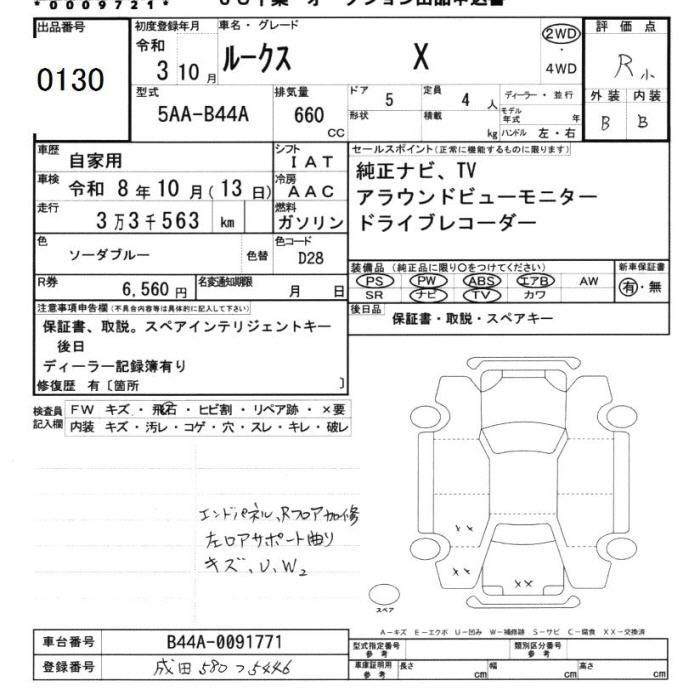 *0009721*
出品番号
0130
初度登録年月
令和
3 10月
車名・グレード
ルークス X
2WD
・
4WD
評価点
R小
外装 内装
B B
型式
5AA-B44A
排気量
660
cc
ドア
5
定員
4 人
ディーラー・並行
形状
積載
kg
モデル年式 年
ハンドル 左・右
車歴
自家用
シフト
IAT
車検
令和 8年10月(13日)
冷房
AAC
走行
3万3千563 km
燃料
ガソリン
色
ソーダブルー
色替
色コード
D28
R券
6,560円
名変通知期限
月 日
セールスポイント(正常に機能するものに限ります)
純正ナビ、TV
アラウンドビューモニター
ドライブレコーダー
装備品 (純正品に限り○をつけてください)
PS PW ABS エアB AW
SR ナビ TV カワ
新車保証書
有・無
後日品
保証書・取説・スペアキー
注意事項申告欄(不具合内容等は具体的に記入して下さい)
保証書、取説。スペアインテリジェントキー
後日
ディーラー記録簿有り
修復歴 有〔箇所 〕
検査員
記入欄
FW キズ・飛石・ヒビ割・リペア跡・×要
内装 キズ・汚レ・コゲ・穴・スレ・キレ・破レ
エンドパネル、Rフロア加修
左ロアサポート曲り
キズ、U、W2
XX
XX
XX
スペア
A-キズ E-エクボ U-凹み W-補修跡 S-サビ C-腐食 XX-交換済
車台番号
B44A-0091771
登録番号
成田580つ5446
型式指定番号
参考
類別区分番号
参考
車庫証明用
参考
長さ cm
幅 cm
高さ cm